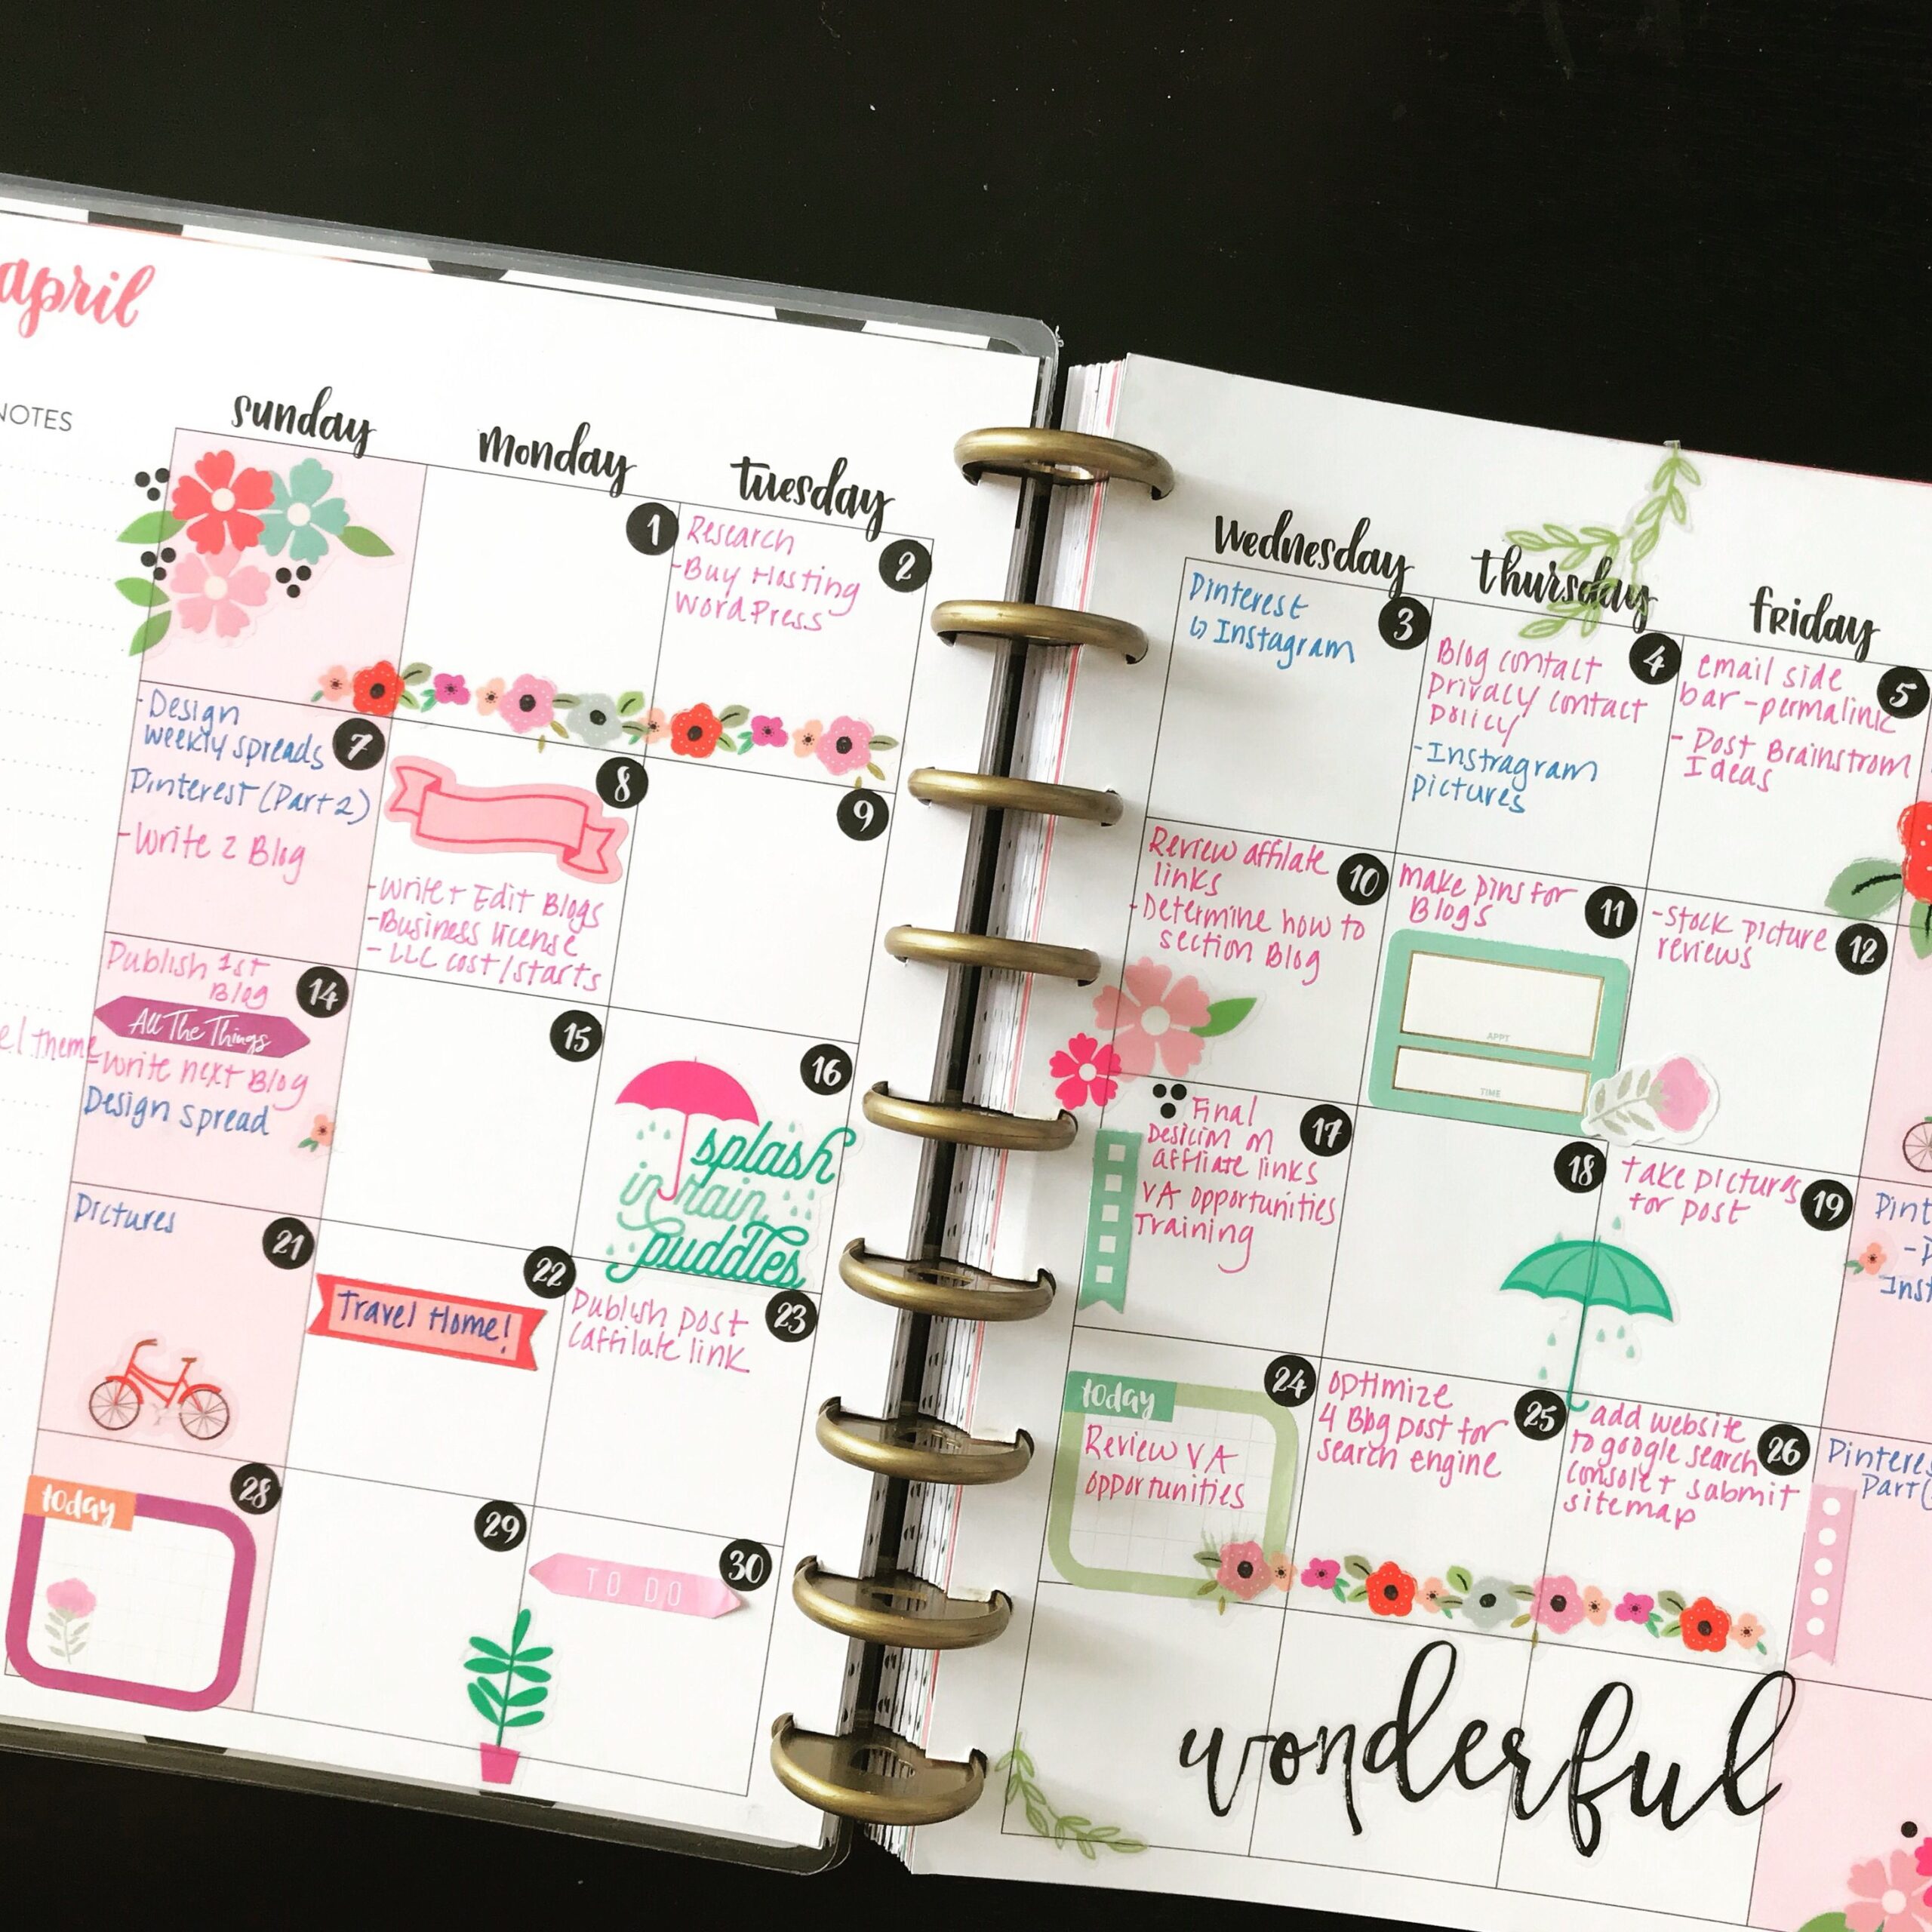 april
NOTES
sunday
monday
tuesday
wednesday
thursday
friday
1
Research
-Buy Hosting
WordPress
2
Pinterest
Instagram
3
Blog contact
Privacy contact
policy
-Instragram
pictures
4
email side
bar -permalink
- Post Brainstrom
Ideas
5
-Design
weekly spreads
Pinterest (Part 2)
-Write 2 Blog
7
8
-Write + Edit Blogs
-Business license
- LLC cost/starts
9
Review affilate
links
-Determine how to
section Blog
10
make pins for
Blogs
11
APPT
TIME
-stock picture
reviews
12
Publish 1st
Blog
14
All The Things
theme
-write next Blog
Design spread
15
16
splash
in rain
puddles
Final
17
affliate links
VA opportunities
Training
18
take pictures
for post
19
Pictures
21
22
Travel Home!
Publish post
(affilate link
23
today
24
Review VA
opportunities
optimize
4 Blog post for
search engine
25
add website
to google search
console + submit
sitemap
26
today
28
29
TO DO
30
wonderful